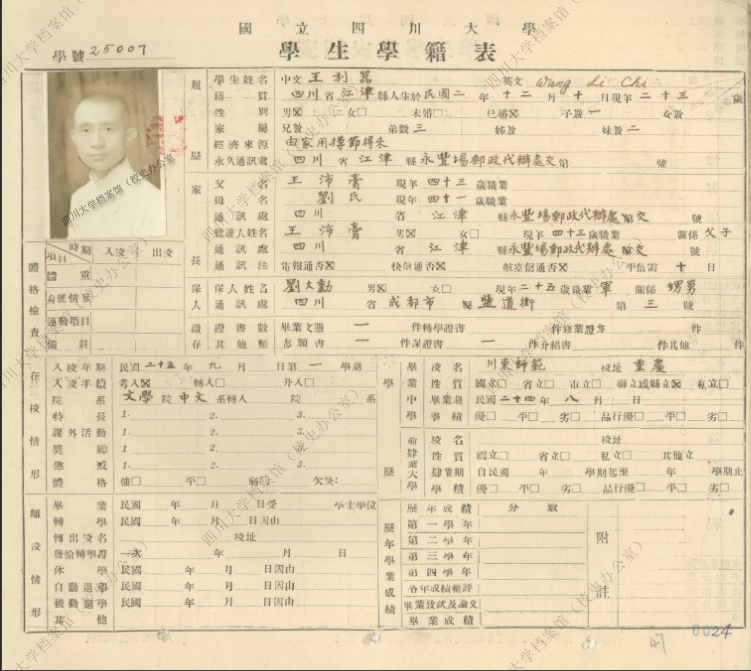 國立四川大學
學號 25007 學生學籍表
履歷
學生姓名 中文 王利器 英文 Wang Li Chi
籍貫 四川省江津縣人生於民國二年十二月十日現年二十三歲
性別 男☒ 女□ 未婚□ 已婚☒ 子數一 女數
家屬 兄數 弟數三 姊數 妹數二
經濟來源 由家用撙節得來
永久通訊處 四川省江津縣永豐場郵政代辦處交第 號
家長
父名 王沛膏 現年四十三歲職業
母名 劉氏 現年四十一歲職業
通訊處 四川省江津縣永豐場郵政代辦處交 號
王沛膏 男☒ 女□ 現年四十三歲職業 關係父子
通訊處 四川省江津縣永豐場郵政代辦處交 號
通訊法 電報通否☒ 快信通否☒ 航空信通否☒ 平信需十日
保人
保人姓名 劉大勳 男☒ 女□ 現年二十五歲職業軍 關係甥男
通訊處 四川省成都市 縣鹽道街 第三號
繳存
證書數 畢業文憑一件 轉學證書 件 修業證書 件
其他類 志願書一件 保證書一件 介紹書 件 其他 件
體格檢查
項目 時期 入校 出校
體重
運動項目
備計
在校情形
入校年期 民國二十五年九月 日第一學期
入校手續 考入☒ 轉入□ 升入□
院系 文學院中文系轉入 院 系
特長 1. 2. 3.
課外活動 1. 2. 3.
獎勵 1. 2. 3.
懲戒 1. 2. 3.
體格 強□ 平□ 弱□ 欠缺：
學歷
中學
校名 川東師範 校址 重慶
性質 國立□ 省立□ 市立□ 聯立或縣立☒ 私立□
畢業期 民國二十四年八月 日
學業成績 優□ 平□ 劣□ 品行優□ 平□ 劣□
前肄業大學
校名 校址
性質 國立□ 省立□ 私立□ 其他立
肄業期 自民國 年 學期起至 年 學期止
學績 優□ 平□ 劣□ 品行優□ 平□ 劣□
離校情形
畢業 民國 年 月 日受 學士學位
轉學 民國 年 月 日因由
轉出校名 校址
發給轉學證 一次 年 月 日
休學 民國 年 月 日因由
自動退學 民國 年 月 日因由
被動退學 民國 年 月 日因由
其他
歷年學業成績
歷年成績 分數
第一學年
第二學年
第三學年
第四學年
各年成績總評
畢業攷試及論文
畢業成績
附註
0024
47
四川大学档案馆（校史办公室）